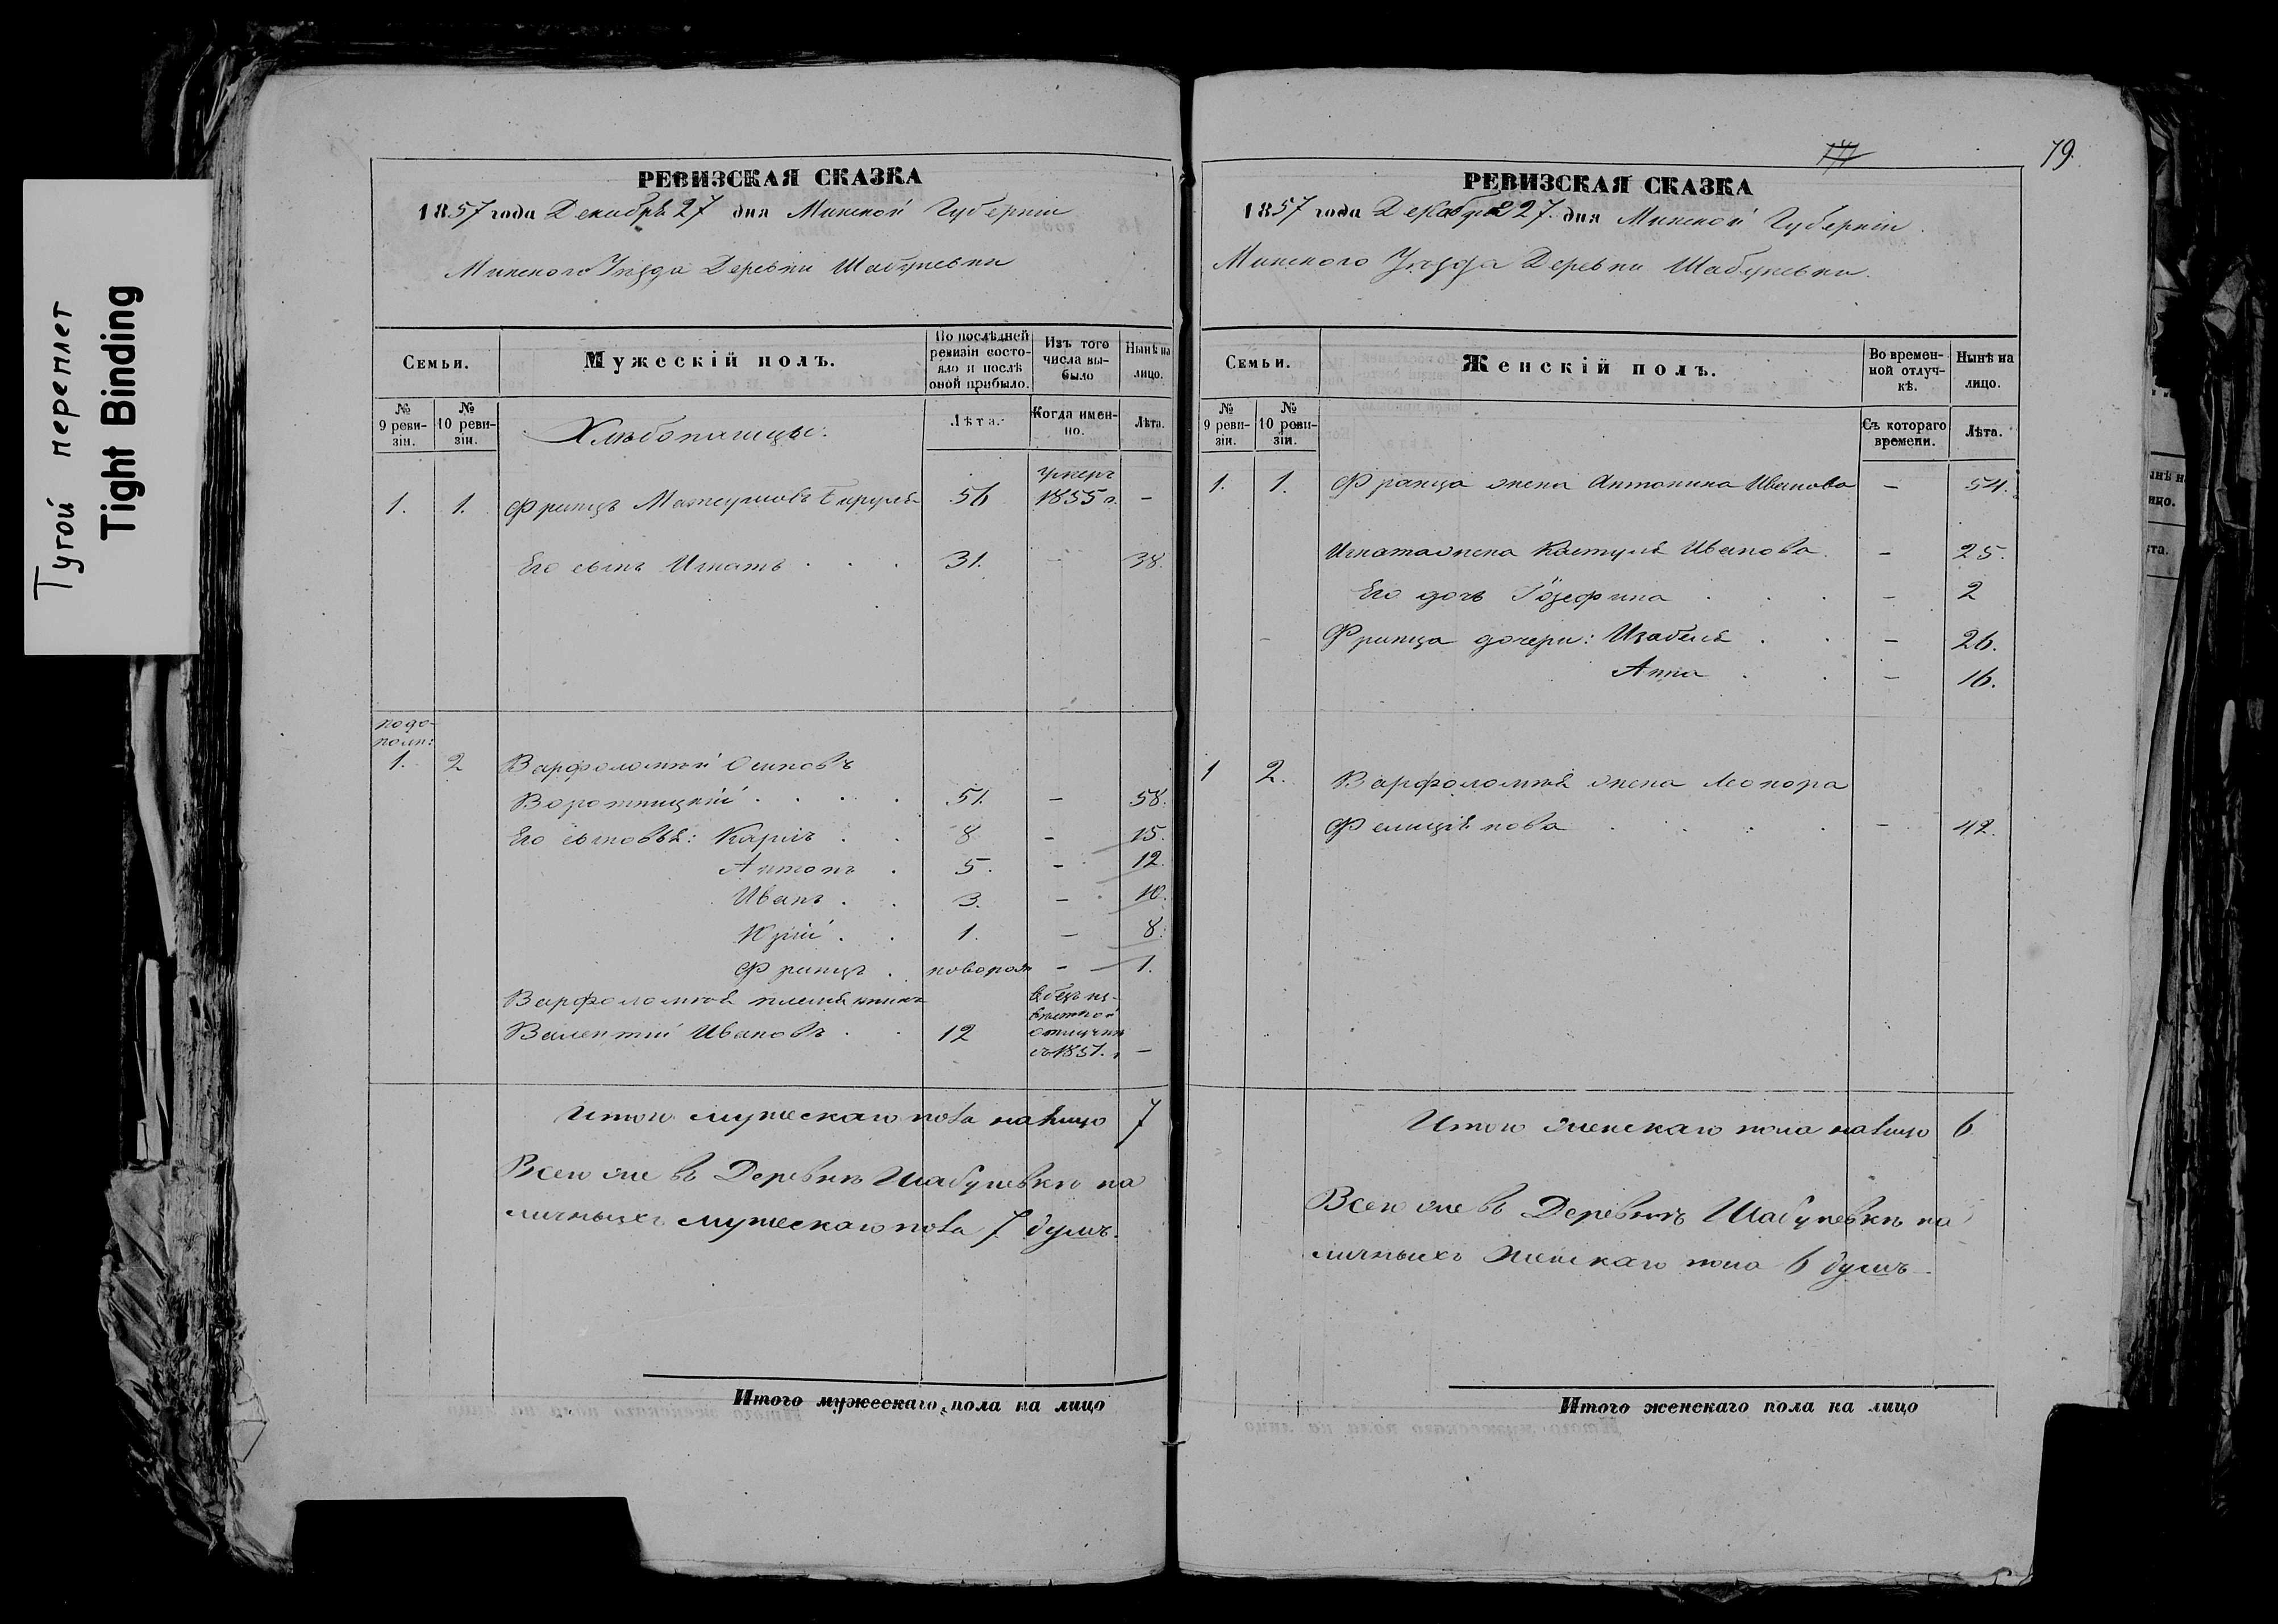 Тугой переплет
Tight Binding
РЕВИЗСКАЯ СКАЗКА
1857 года Декабря 27 дня Минской Губерніи
Минского Уѣзда Деревни Шабуневки
Семьи.
Мужескій полъ.
По послѣдней ревизіи состояло и послѣ оной прибыло.
Изъ того числа выбыло
Нынѣ на лицо.
№ 9 ревизіи.
№ 10 ревизіи.
Хлѣбопашцы.
Лѣта.
Когда именно.
Лѣта.
умеръ
1. 1. Францъ Матеушовъ Бируля 56 1855 г. –
Его сынъ Игнатъ . . . 31. – 38.
подополн:
1. 2 Варфоломѣй Осиповъ
Воротницкій . . . . 51. – 58.
Его сыновья: Карлъ . . 8 – 15.
Антонъ . 5. – 12.
Иванъ . . 3. – 10.
Юрій . . 1. – 8.
Францъ . новорож – 1.
Варфоломѣя племянникъ
Валентій Ивановъ . . 12
въ безъизвѣстной отлучкѣ съ 1851. г –
Итого мужескаго пола налицо 7
Всего же въ Деревнѣ Шабуневкѣ на
личныхъ мужескаго пола 7 душъ.
Итого мужескаго пола на лицо
79.
РЕВИЗСКАЯ СКАЗКА
1857 года Декабря 27. дня Минской Губерніи
Минского Уѣзда Деревни Шабуневки.
Семьи.
Женскій полъ.
Во временной отлучкѣ.
Нынѣ на лицо.
№ 9 ревизіи.
№ 10 ревизіи.
Съ котораго времени.
Лѣта.
1. 1. Франца жена Антонина Иванова – 54.
Игната жена Кастуля Иванова. – 25.
Его дочь Іозефина . . . – 2
Франца дочери: Изабеля . . – 26.
Анна . . – 16.
1 2. Варфоломѣя жена Леонора
Фелиціянова . . . . – 42.
Итого женскаго пола налицо 6
Всего же въ Деревнѣ Шабуневкѣ на
личныхъ женскаго пола 6 душъ.
Итого женскаго пола на лицо